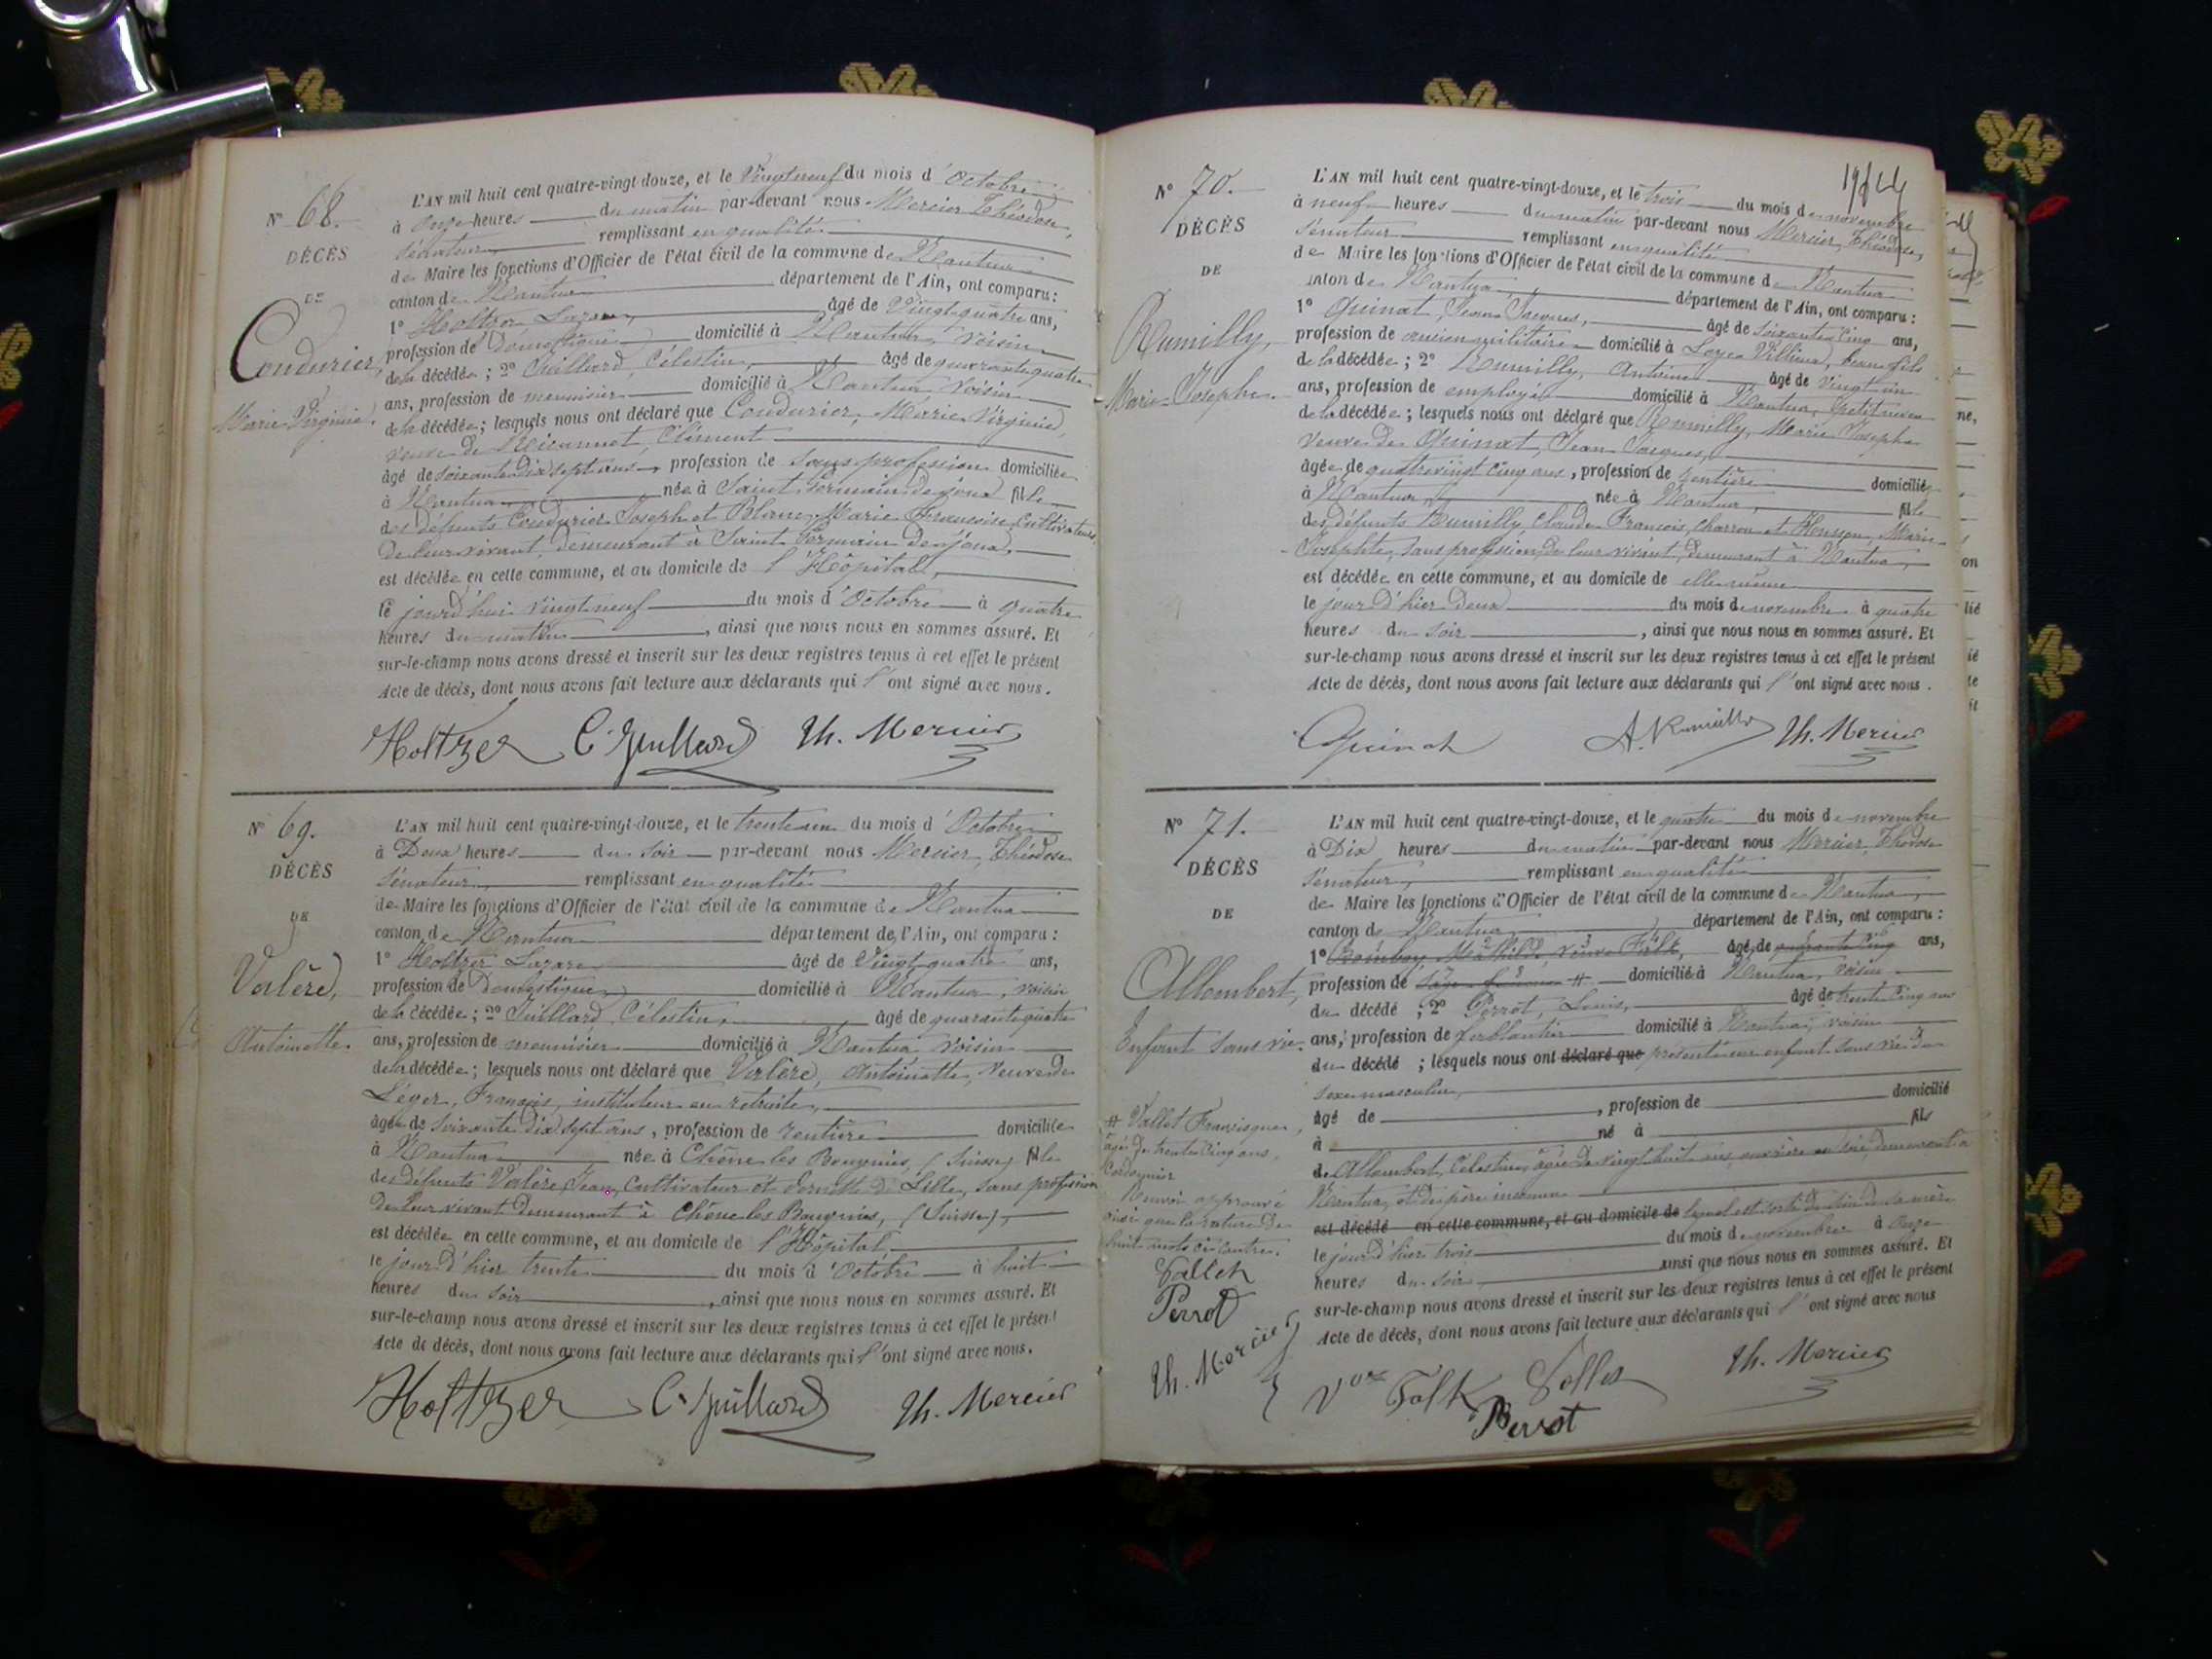 N° 68.
DÉCÈS
DE
Coudurier,
Marie Virginie.
L'AN mil huit cent quatre-vingt-douze, et le Vingt neuf du mois d'Octobre
à Onze heures du matin par-devant nous Mercier Théodose,
Sénateur remplissant en qualité
de Maire les fonctions d'Officier de l'état civil de la commune de Nantua
canton de Nantua département de l'Ain, ont comparu :
1° Holtzer Lazare, âgé de Vingt quatre ans,
profession de Domestique domicilié à Nantua, voisin
de la décédée ; 2° Juillard, Célestin, âgé de quarante quatre
ans, profession de menuisier domicilié à Nantua voisin
de la décédée ; lesquels nous ont déclaré que Coudurier, Marie Virginie,
veuve de Clément
âgée de soixante dix sept ans, profession de sans profession domiciliée
à Nantua née à Saint Germain de Joux fille
des défunts Coudurier Joseph et Blanc Marie Françoise, Cultivateurs
De leur vivant, demeurant à Saint Germain de Joux,
est décédée en cette commune, et au domicile de l'Hôpital,
le jourd'hui vingt neuf du mois d'Octobre à quatre
heures du matin, ainsi que nous nous en sommes assuré. Et
sur-le-champ nous avons dressé et inscrit sur les deux registres tenus à cet effet le présent
Acte de décès, dont nous avons fait lecture aux déclarants qui l'ont signé avec nous.
Holtzer C. Juillard Th. Mercier
N° 69.
DÉCÈS
DE
Valère,
Antoinette.
L'AN mil huit cent quatre-vingt-douze, et le trente un du mois d'Octobre
à Deux heures du soir par-devant nous Mercier, Théodose
Sénateur, remplissant en qualité
de Maire les fonctions d'Officier de l'état civil de la commune de Nantua
canton de Nantua département de l'Ain, ont comparu :
1° Holtzer Lazare âgé de Vingt quatre ans,
profession de Domestique domicilié à Nantua, voisin
de la décédée ; 2° Juillard, Célestin, âgé de quarante quatre
ans, profession de menuisier domicilié à Nantua voisin
de la décédée ; lesquels nous ont déclaré que Valère, Antoinette, veuve de
Léger, François, instituteur en retraite,
âgée de Soixante dix sept ans, profession de rentière domiciliée
à Nantua née à Chêne les Bougeries, (Suisse) fille
des défunts Valère Jean, Cultivateur et de Lille, sans profession
De leur vivant demeurant à Chêne les Bougeries, (Suisse),
est décédée en cette commune, et au domicile de l'Hôpital
le jour d'hier trente du mois d'Octobre à huit
heures du soir, ainsi que nous nous en sommes assuré. Et
sur-le-champ nous avons dressé et inscrit sur les deux registres tenus à cet effet le présent
Acte de décès, dont nous avons fait lecture aux déclarants qui l'ont signé avec nous.
Holtzer C. Juillard Th. Mercier
N° 70.
DÉCÈS
DE
Rumilly,
Marie Josephe.
L'AN mil huit cent quatre-vingt-douze, et le trois du mois de novembre
à neuf heures du matin par-devant nous Mercier, Théodose,
Sénateur remplissant en qualité
de Maire les fonctions d'Officier de l'état civil de la commune de Nantua
canton de Nantua, département de l'Ain, ont comparu :
1° Quinat, Jean Jacques, âgé de soixante cinq ans,
profession de ancien militaire domicilié à Loyes Villieux, beau-fils
de la décédée ; 2° Rumilly, Antoine âgé de Vingt un
ans, profession de employé domicilié à Nantua, petit neveu
de la décédée ; lesquels nous ont déclaré que Rumilly, Marie Josephe
veuve de Quinat, Jean Jacques,
âgée de quatre vingt cinq ans, profession de rentière domiciliée
à Nantua, née à Nantua, fille
des défunts Rumilly Claude François, charron et Marie
Josephte, sans profession, de leur vivant, demeurant à Nantua,
est décédée en cette commune, et au domicile de elle même
le jour d'hier deux du mois de novembre à quatre
heures du soir, ainsi que nous nous en sommes assuré. Et
sur-le-champ nous avons dressé et inscrit sur les deux registres tenus à cet effet le présent
Acte de décès, dont nous avons fait lecture aux déclarants qui l'ont signé avec nous.
Quinat A. Rumilly Th. Mercier
N° 71.
DÉCÈS
DE
Allombert,
Enfant sans vie.
# Vallet Francisque,
âgé de trente cinq ans,
Cordonnier
Renvoi approuvé
ainsi que la rature de
huit mots ci contre.
Vallet
Perrot
Th. Mercier
L'AN mil huit cent quatre-vingt-douze, et le quatre du mois de novembre
à Dix heures du matin par-devant nous Mercier, Théodose
Sénateur, remplissant en qualité
de Maire les fonctions d'Officier de l'état civil de la commune de Nantua,
canton de Nantua département de l'Ain, ont comparu :
1° Mathilde veuve Falk, âgé de quarante cinq ans,
profession de sage femme # domicilié à Nantua, voisin
du décédé ; 2° Perrot, Louis, âgé de trente cinq ans
ans, profession de ferblantier domicilié à Nantua, voisin
du décédé ; lesquels nous ont déclaré que présenté un enfant sans vie du
sexe masculin,
âgé de , profession de domicilié
à né à fils
de Allombert, Célestine, âgée de vingt huit ans, ouvrière en soie, demeurant à
Nantua, et de père inconnu
est décédé en cette commune, et au domicile de lequel est sorti du sein de sa mère
le jour d'hier trois du mois de novembre à onze
heures du soir ainsi que nous nous en sommes assuré. Et
sur-le-champ nous avons dressé et inscrit sur les deux registres tenus à cet effet le présent
Acte de décès, dont nous avons fait lecture aux déclarants qui l'ont signé avec nous
Vve Falk Vallet Th. Mercier
Perrot